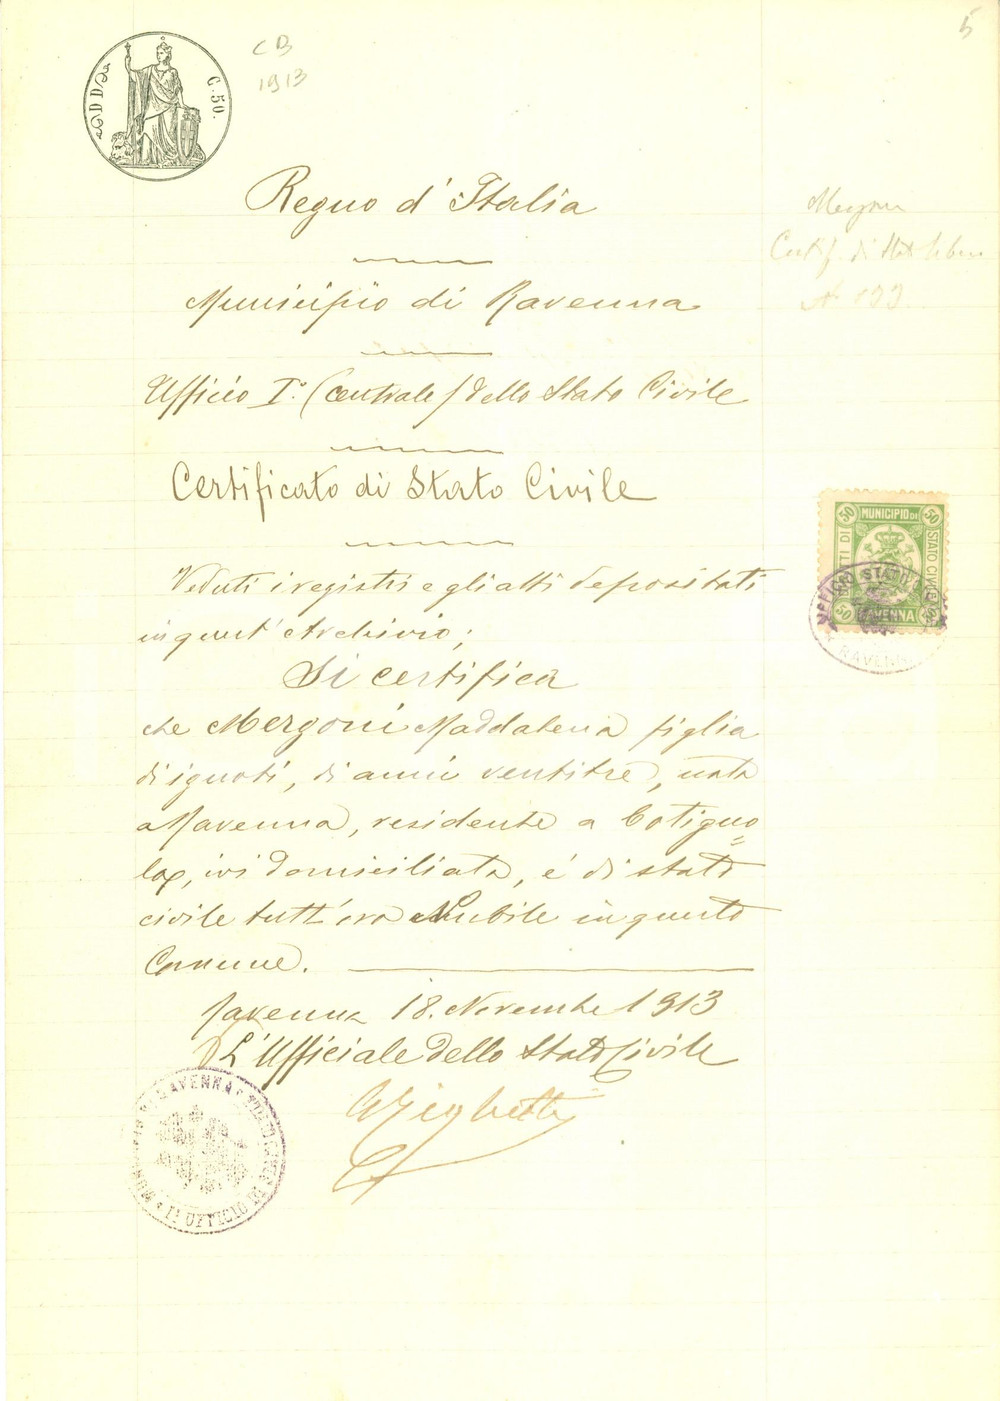 5
C B
1913
C. 50.
Regno d'Italia
Mergoni
Certif. di Stat. liber
N 133
Municipio di Ravenna
Ufficio I.° (centrale) dello Stato Civile
Certificato di Stato Civile
50 MUNICIPIO DI 50
STATO CIVILE
50 RAVENNA 50
Veduti i registri e gli atti depositati
in quest'Archivio;
Si certifica
che Mergoni Maddalena figlia
di ignoti, di anni ventitre, nata
a Ravenna, residente a Cotigno=
la, ivi domiciliata, é di stato
civile tutt'ora Nubile in questo
Comune.
Ravenna 18. Novembre 1913
L'Ufficiale dello Stato Civile
RAVENNA
Iº UFFICIO DI